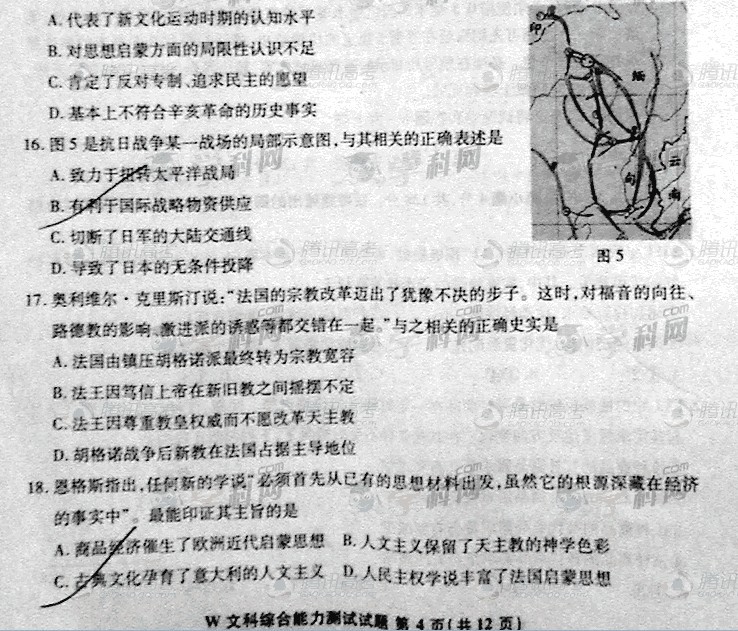 A. 代表了新文化运动时期的认知水平
B. 对思想启蒙方面的局限性认识不足
C. 肯定了反对专制、追求民主的愿望
D. 基本上不符合辛亥革命的历史事实
16. 图 5 是抗日战争某一战场的局部示意图,与其相关的正确表述是
A. 致力于扭转太平洋战局
B. 有利于国际战略物资供应
C. 切断了日军的大陆交通线
D. 导致了日本的无条件投降
印
缅
云
南
甸
图 5
17. 奥利维尔·克里斯汀说:“法国的宗教改革迈出了犹豫不决的步子。这时,对福音的向往、
路德教的影响、激进派的诱惑等都交错在一起。”与之相关的正确史实是
A. 法国由镇压胡格诺派最终转为宗教宽容
B. 法王因笃信上帝在新旧教之间摇摆不定
C. 法王因尊重教皇权威而不愿改革天主教
D. 胡格诺战争后新教在法国占据主导地位
18. 恩格斯指出,任何新的学说“必须首先从已有的思想材料出发,虽然它的根源深藏在经济
的事实中”。最能印证其主旨的是
A. 商品经济催生了欧洲近代启蒙思想 B. 人文主义保留了天主教的神学色彩
C. 古典文化孕育了意大利的人文主义 D. 人民主权学说丰富了法国启蒙思想
W 文科综合能力测试试题 第 4 页(共 12 页)